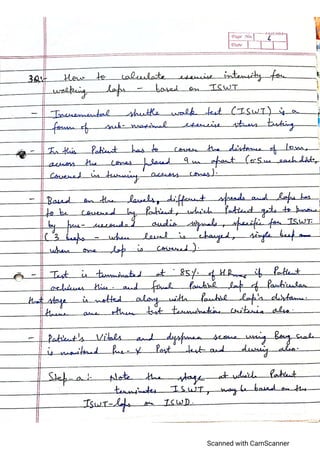 Page No. 6
Date
3Q:- How to calculate exercise intensity for
walking laps - based on ISWT
- Incremental shuttle walk test (ISWT) is a
form of sub-maximal exercise stress testing
- In this Patient has to cover the distance of 10m,
across the cones placed 9m apart (0.5m each dist.
covered in turning across cones).
- Based on the levels, different speeds and laps has
to be covered by Patient, which Patient gets to know
by pre-recorded audio signals, specific for ISWT.
(3 beeps - when level is changed, single beep on
when one lap is covered).
- Test is terminated at 85% of HRmax if Patient
achieves this and final Partial lap of Particular
that stage is notted along with Partial lap's distance.
there are other test termination criteria also.
- Patient's Vitals and dyspnea score using Borg scale
is monitored Pre- & Post test and during also.
Step-a:- Note the stage at which Patient
terminates ISWT, may be based on the
ISWT-laps or ISWD.
Scanned with CamScanner